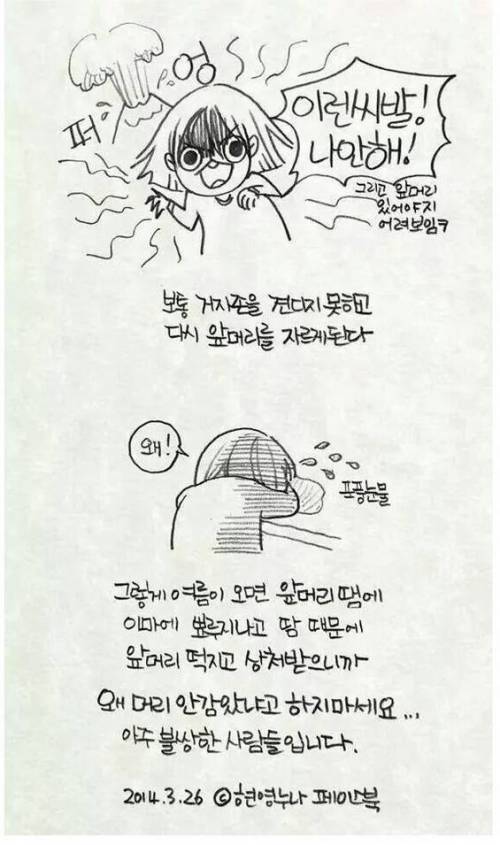 퍼
엉
이런씨발!
나안해!
그리고 앞머리
있어야지
어려보임ㅋ
보통 거지존을 견디지 못하고
다시 앞머리를 자르게된다
왜!
프풍눈물
그렇게 여름이 오면 앞머리 땜에
이마에 뾰루지나고 땀 때문에
앞머리 떡지고 상처받으니까
왜 머리 안감았냐고 하지마세요...
아주 불쌍한 사람들입니다.
2014.3.26 ©현영누나 페이스북